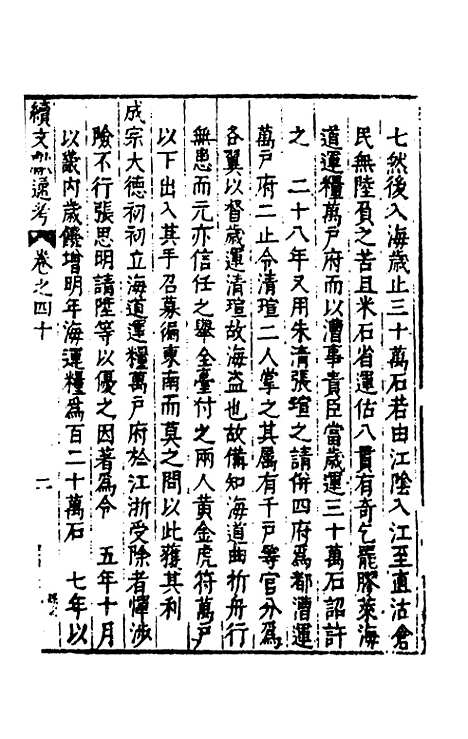 七然後入海歲止三十萬石若由江陰入江至直沽倉
民無陸負之苦且米石省運估八貫有奇乞罷膠萊海
道運糧萬戶府而以漕事責臣當歲運三十萬石詔許
之　二十八年又用朱淸張瑄之請併四府爲都漕運
萬戶府二止令清瑄二人掌之其屬有千戶等官分爲
各翼以督歲運清瑄故海盜也故備知海道曲折舟行
無患而元亦信任之舉全臺付之兩人黃金虎符萬戶
以下出入其手召募徧東南而莫之問以此獲其利
成宗大德初初立海道運糧萬戶府於江浙受除者憚涉
險不行張思明請陞等以優之因著爲令　五年十月
以畿內歲饑增明年海運糧爲百二十萬石　七年以
續文獻通考　卷之四十